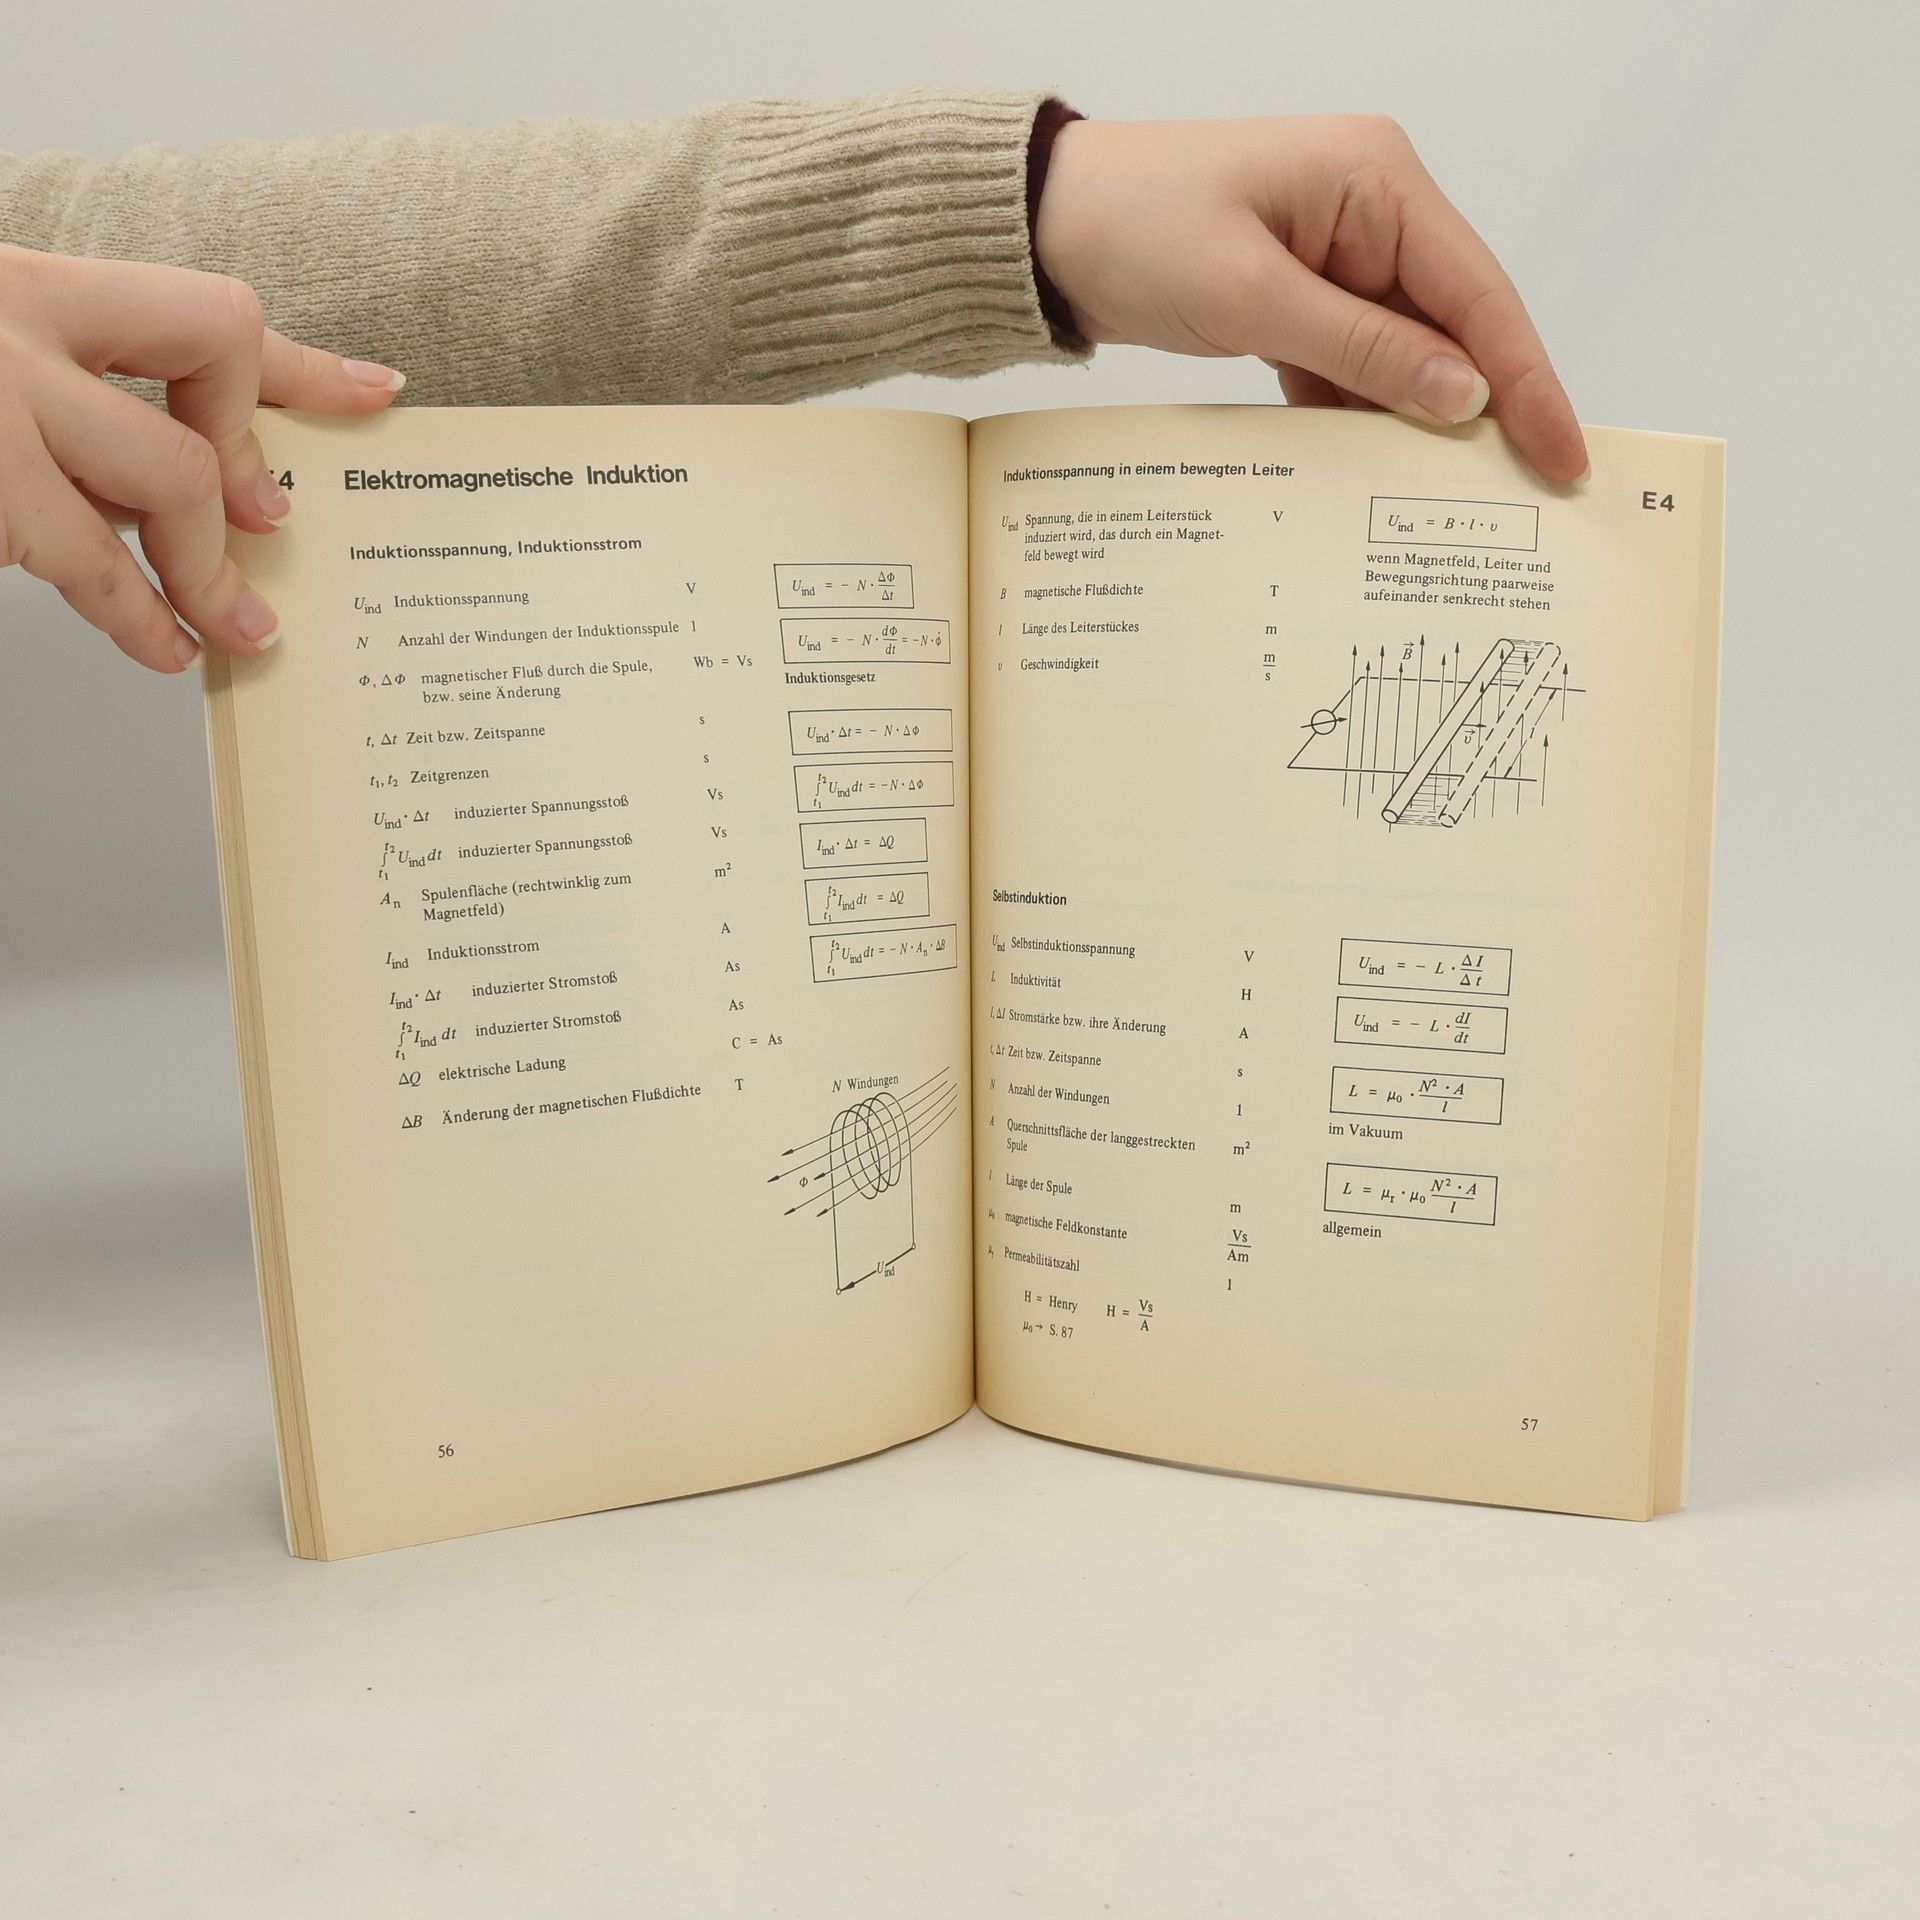 E4 Elektromagnetische Induktion
Induktionsspannung, Induktionsstrom
U_ind Induktionsspannung V
N Anzahl der Windungen der Induktionsspule 1
Φ, ΔΦ magnetischer Fluß durch die Spule, Wb = Vs
bzw. seine Änderung
t, Δt Zeit bzw. Zeitspanne s
t₁, t₂ Zeitgrenzen s
U_ind · Δt induzierter Spannungsstoß Vs
∫_t₁^t₂ U_ind dt induzierter Spannungsstoß Vs
A_n Spulenfläche (rechtwinklig zum m²
Magnetfeld)
I_ind Induktionsstrom A
I_ind · Δt induzierter Stromstoß As
∫_t₁^t₂ I_ind dt induzierter Stromstoß As
ΔQ elektrische Ladung C = As
ΔB Änderung der magnetischen Flußdichte T
U_ind = − N · ΔΦ/Δt
U_ind = − N · dΦ/dt = −N · Φ̇
Induktionsgesetz
U_ind · Δt = − N · ΔΦ
∫_t₁^t₂ U_ind dt = −N · ΔΦ
I_ind · Δt = ΔQ
∫_t₁^t₂ I_ind dt = ΔQ
∫_t₁^t₂ U_ind dt = − N · A_n · ΔB
N Windungen
Φ
U_ind
56
Induktionsspannung in einem bewegten Leiter
E4
U_ind Spannung, die in einem Leiterstück V
induziert wird, das durch ein Magnet-
feld bewegt wird
B magnetische Flußdichte T
l Länge des Leiterstückes m
v Geschwindigkeit m/s
U_ind = B · l · v
wenn Magnetfeld, Leiter und
Bewegungsrichtung paarweise
aufeinander senkrecht stehen
B⃗
v⃗
Selbstinduktion
U_ind Selbstinduktionsspannung V
L Induktivität H
I, ΔI Stromstärke bzw. ihre Änderung A
t, Δt Zeit bzw. Zeitspanne s
N Anzahl der Windungen 1
A Querschnittsfläche der langgestreckten m²
Spule
l Länge der Spule m
μ₀ magnetische Feldkonstante Vs/Am
μ_r Permeabilitätszahl 1
H = Henry H = Vs/A
μ₀ → S. 87
U_ind = − L · ΔI/Δt
U_ind = − L · dI/dt
L = μ₀ · N² · A/l
im Vakuum
L = μ_r · μ₀ N² · A/l
allgemein
57